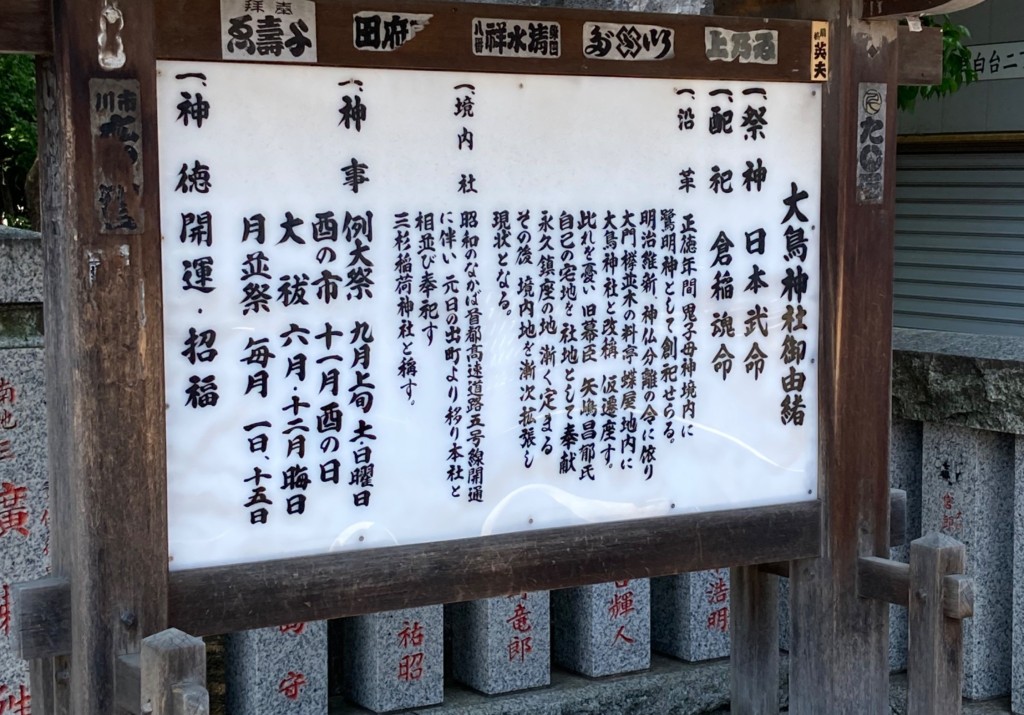 大鳥神社御由緒
一、祭神 日本武命
一、配祀 倉稲魂命
一、沿革 正徳年間 鬼子母神境内に
鷺明神として創祀せらる。
明治維新、神仏分離の令に依り
大門欅並木の料亭・蝶屋地内に
大鳥神社と改稱 仮遷座す。
此れを憂い 旧幕臣 矢嶋昌郁氏
自己の宅地を 社地として奉献
永久鎮座の地 漸く定まる
その後 境内地を漸次拡張し
現状となる。
一、境内社 昭和のなかば首都高速道路五号線開通
に伴い 元日の出町より移り本社と
相並び奉祀す
三杉稲荷神社と稱す。
一、神事 例大祭 九月上旬 土日曜日
酉の市 十一月酉の日
大祓 六月・十二月晦日
月並祭 毎月 一日、十五日
一、神徳 開運・招福
田府
清水祥
上乃
英夫
白台二丁
廣
守
祐昭
竜郎
輝人
浩明